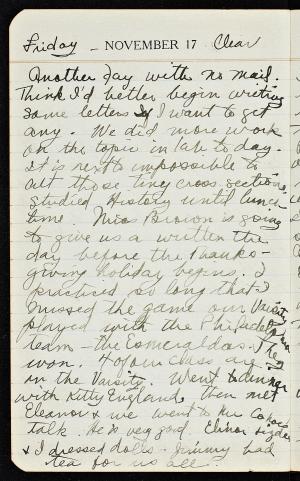 Friday - NOVEMBER 17 Clear
Another day with no mail.
Think I'd better begin writing
some letters if I want to get
any. We did more work
on the topic in lab to-day.
It is next to impossible to
cut those tiny cross sections.
Studied History until lunch
time. Miss Brown is going
to give us a written the
day before the Thanks-
giving holiday begins. I
practiced so long that I
missed the game our Varsity
played with the Philadelphia
team - the Esmeraldas. They
won. 4 of our class are
on the Varsity. Went to dinner
with Kitty England, then met
Eleanor & we went to
talk. He is very good. Elinor
& I dressed dolls. Jimmy had
tea for us all.